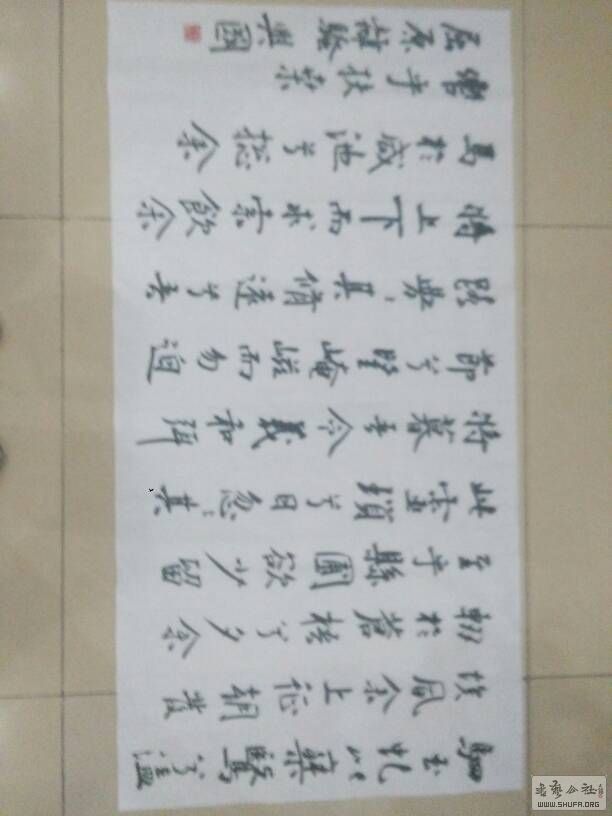 駟玉虬以椉鷖兮溘
埃風余上征朝發
軔於蒼梧兮夕余
至乎縣圃欲少留
此靈瑣兮日忽忽其
將暮吾令羲和弭
節兮望崦嵫而勿迫
路曼曼其脩遠兮吾
將上下而求索飲余
馬於咸池兮揔余
轡乎扶桑
屈原詩 興國
書藝公社
WWW.SHUFA.ORG